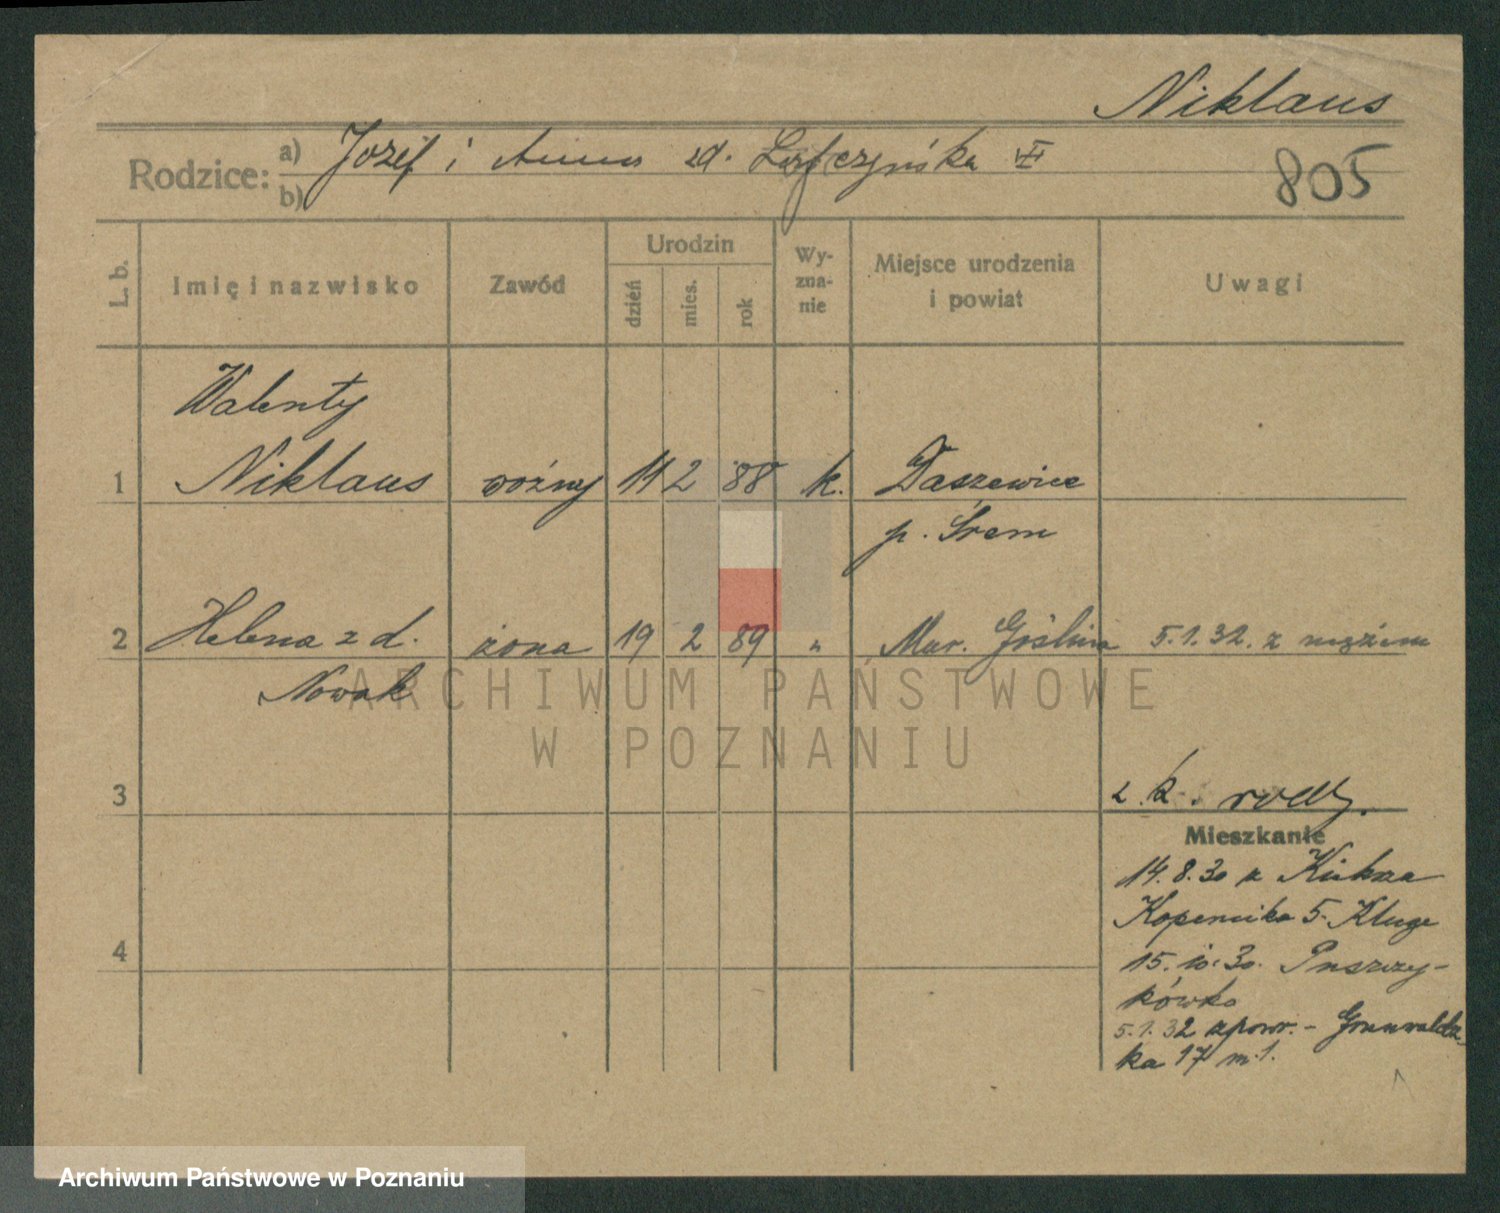 Niklaus
Rodzice: a) Józef i Anna zd.
b)
805
L. b. Imię i nazwisko Zawód Urodzin dzień mies. rok Wyznanie Miejsce urodzenia i powiat Uwagi
Walenty
1 Niklaus woźny 11 2 88 k. Daszewice
p. Śrem
2 Helena z d. żona 19 2 89 " Mur. Goślina 5.1.32. z mężem
Nowak
ARCHIWUM PAŃSTWOWE
W POZNANIU
3 z k. rodz.
Mieszkanie
14.8.30 z
Kopernika 5 Kluge
4
15.10.30. Puszczy-
kówko
5.1.32 zpowr. - Grunwaldz-
ka 17 m.1.
Archiwum Państwowe w Poznaniu